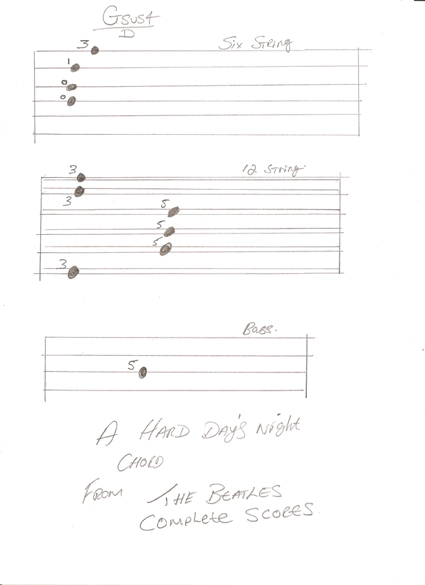 Gsus4
D
3 Six String
1
0
0
3 12 String
3
5
5
5
3
Bass.
5
A HARD DAY'S Night
CHORD
FROM THE BEATLES
COMPLETE SCORES.